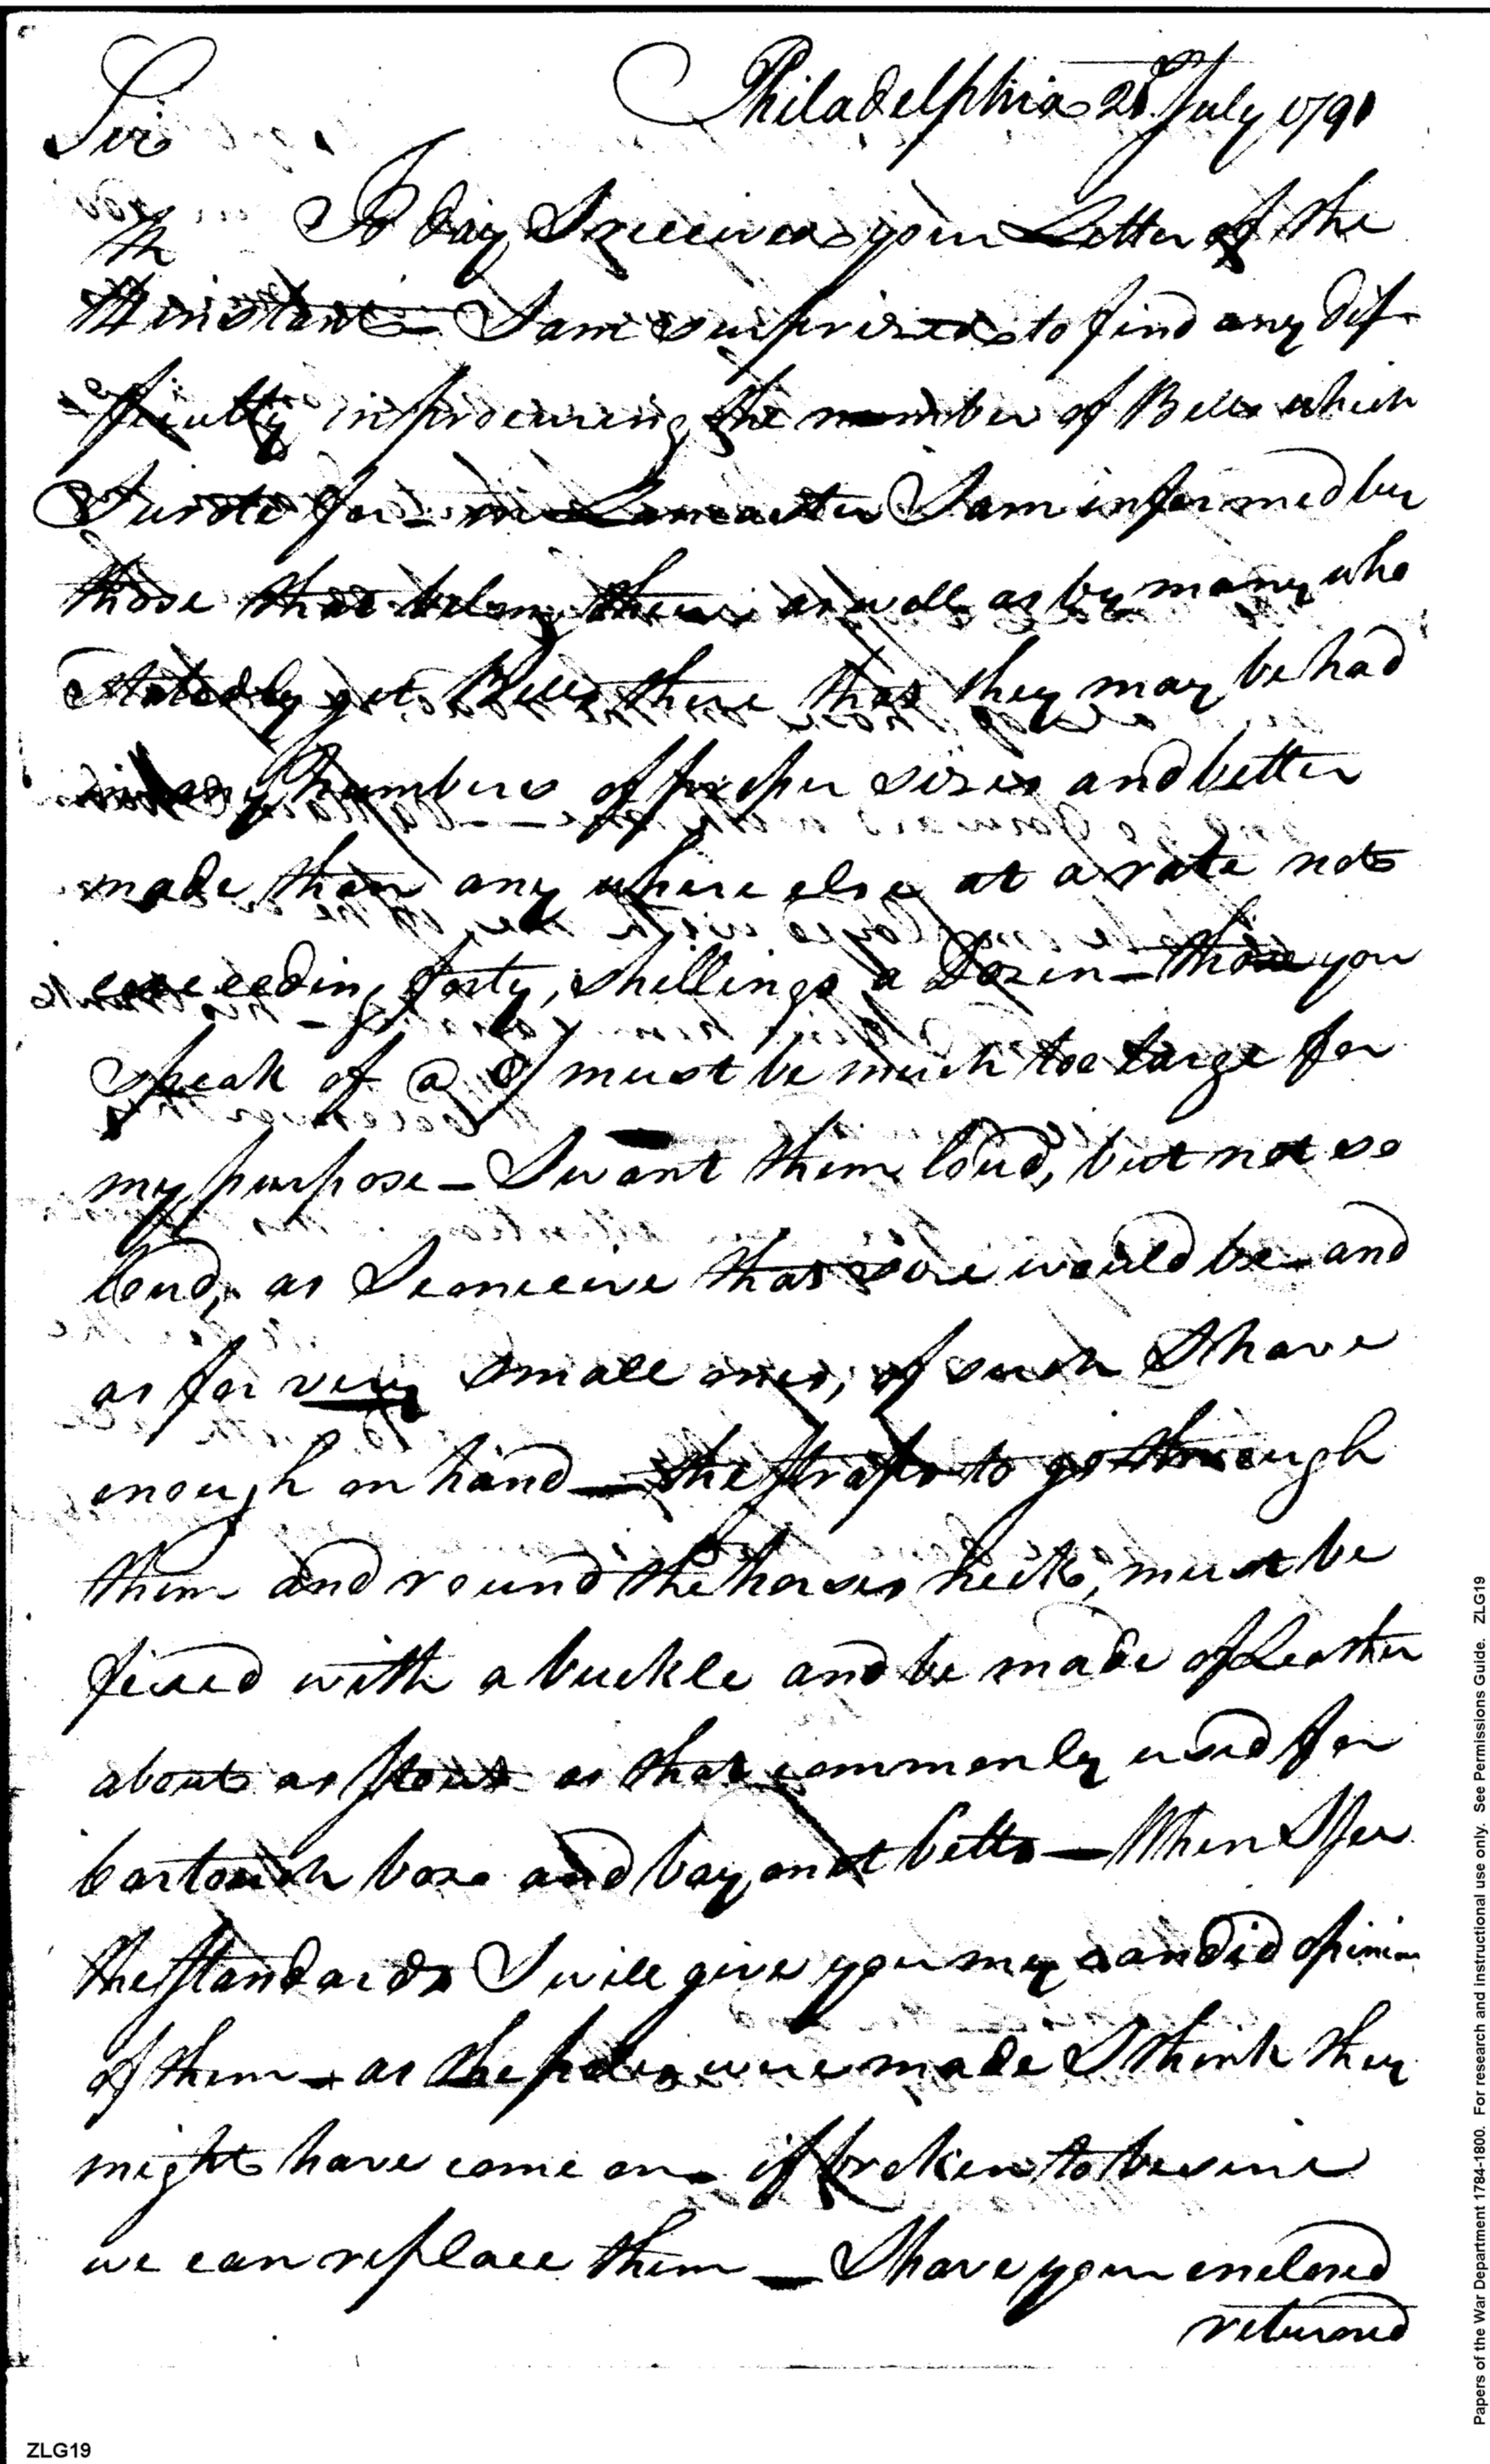 Philadelphia 21st July 1791
Sir
To day I received your Letter of the
instant – I am surprized to find any dif-
ficulty in procuring the number of Bells which
I wrote for – in Lancaster I am informed by
those that belong there as well as by many who
Statedly get Bells there that they may be had
in any numbers of proper sizes and better
made than any where else at a rate not
exceeding forty shillings a Dozen – those you
speak of @ must be much too large for
my purpose – I want them loud, but not so
loud, as I conceive that size would be – and
as for very small ones, of such I have
enough on hand – the straps to go through
them and round the horses necks, must be
fixed with a buckle and be made of Leather
about as stout as that commonly used for
cartouch box and bayonet belts – When I see
the Standards I will give you my candid opinion
of them – as the poles were made I think they
might have come on – if broken to be sure
we can replace them – I have your enclosed
returned
Papers of the War Department 1784-1800. For research and instructional use only. See Permissions Guide. ZLG19
ZLG19